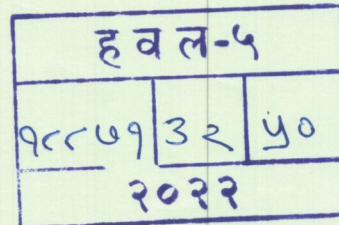 हवल-५
१८८७१ ३२ ५०
२०२२